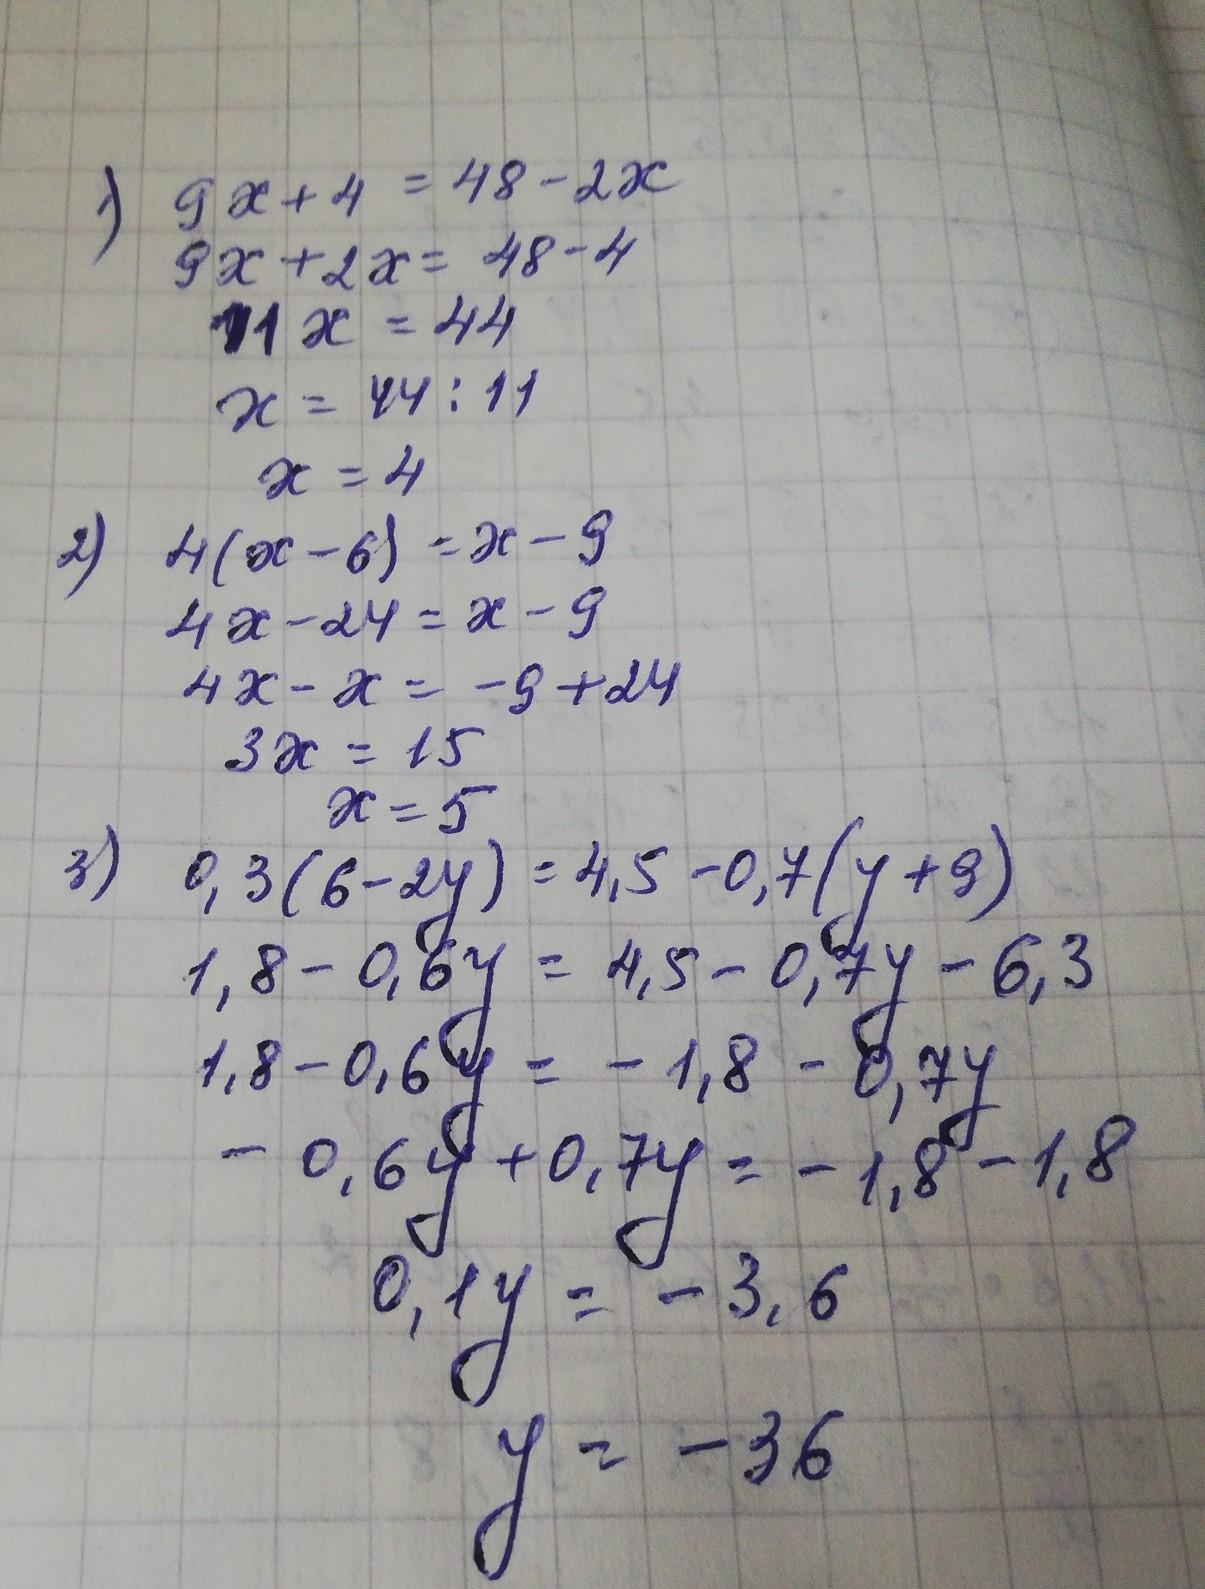 1) 9x + 4 = 48 - 2x
9x + 2x = 48 - 4
11x = 44
x = 44 : 11
x = 4
2) 4(x - 6) = x - 9
4x - 24 = x - 9
4x - x = -9 + 24
3x = 15
x = 5
3) 0,3(6 - 2y) = 4,5 - 0,7(y + 9)
1,8 - 0,6y = 4,5 - 0,7y - 6,3
1,8 - 0,6y = - 1,8 - 0,7y
- 0,6y + 0,7y = - 1,8 - 1,8
0,1y = - 3,6
y = - 36